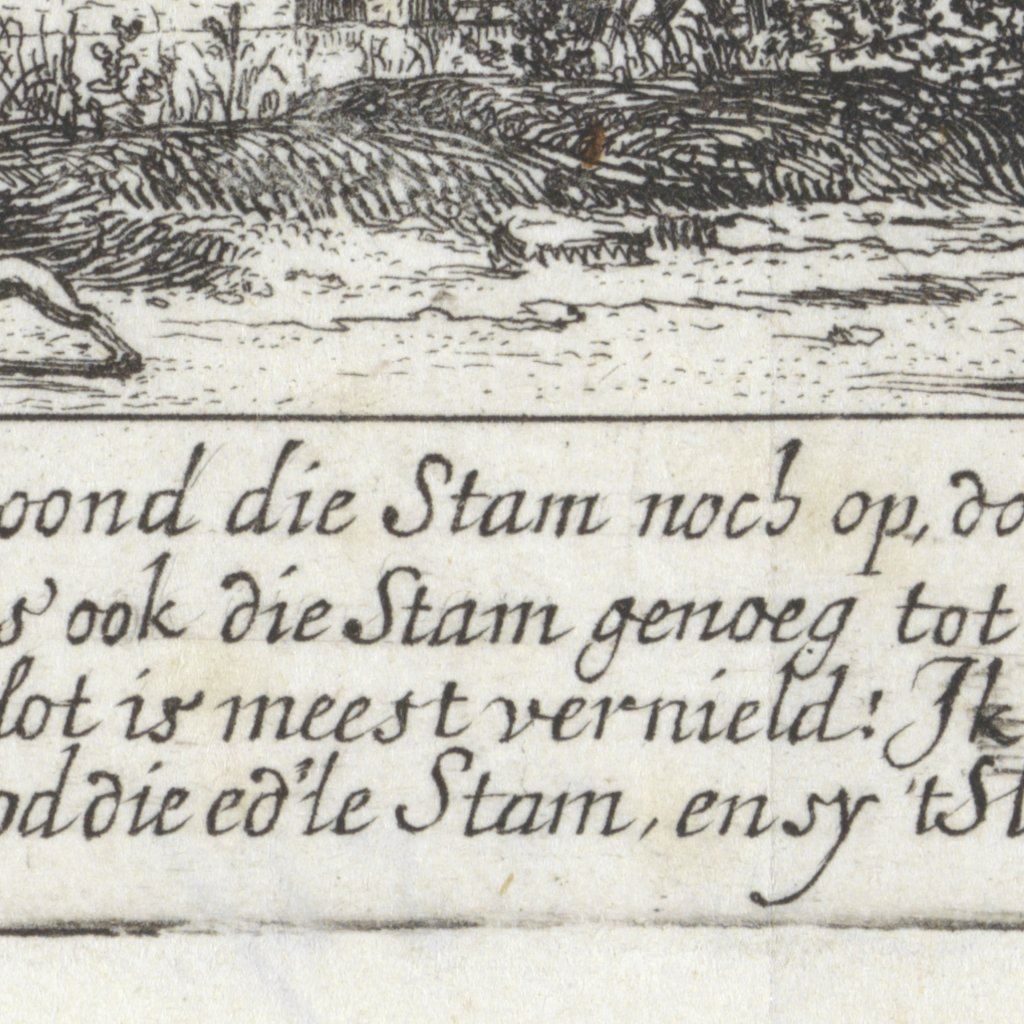 oond die Stam noch op, do
s ook die Stam genoeg tot
lot is meest vernield! Ik
od die ed'le Stam, en sy 'tSl